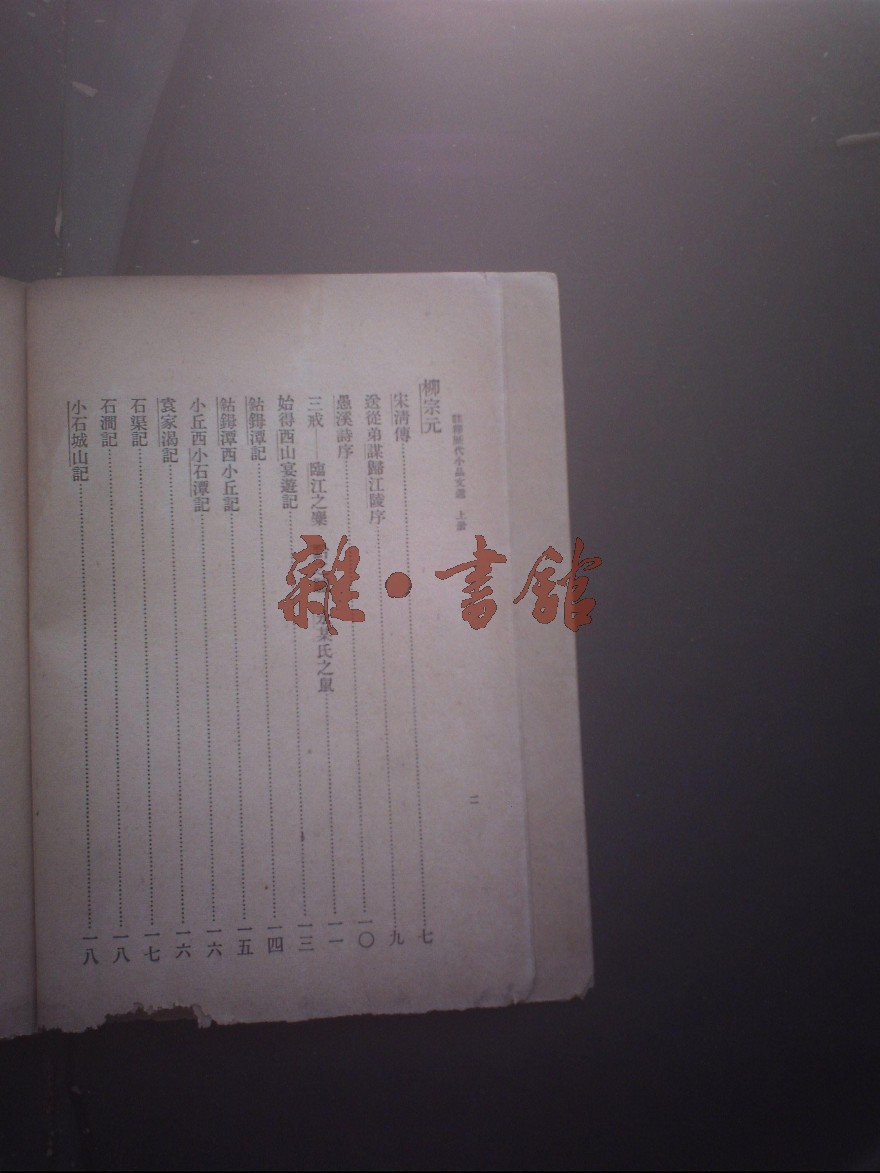 註釋歷代小品文選 上册
二
柳宗元
宋清傳……七
送從弟謀歸江陵序……九
愚溪詩序……一〇
三戒——臨江之麋 某氏之鼠……一一
始得西山宴遊記……一三
鈷鉧潭記……一四
鈷鉧潭西小丘記……一五
小丘西小石潭記……一六
袁家渴記……一六
石渠記……一七
石澗記……一八
小石城山記……一八
雜·書館